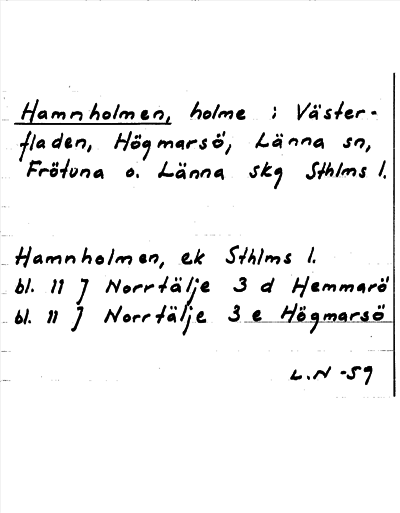 Hamnholmen, holme i Väster-
fladen, Högmarsö, Länna sn,
Frötuna o. Länna skg Sthlms l.
Hamnholmen, ek Sthlms l.
bl. 11 J Norrtälje 3 d Hemmarö
bl. 11 J Norrtälje 3 e Högmarsö
L.N -59